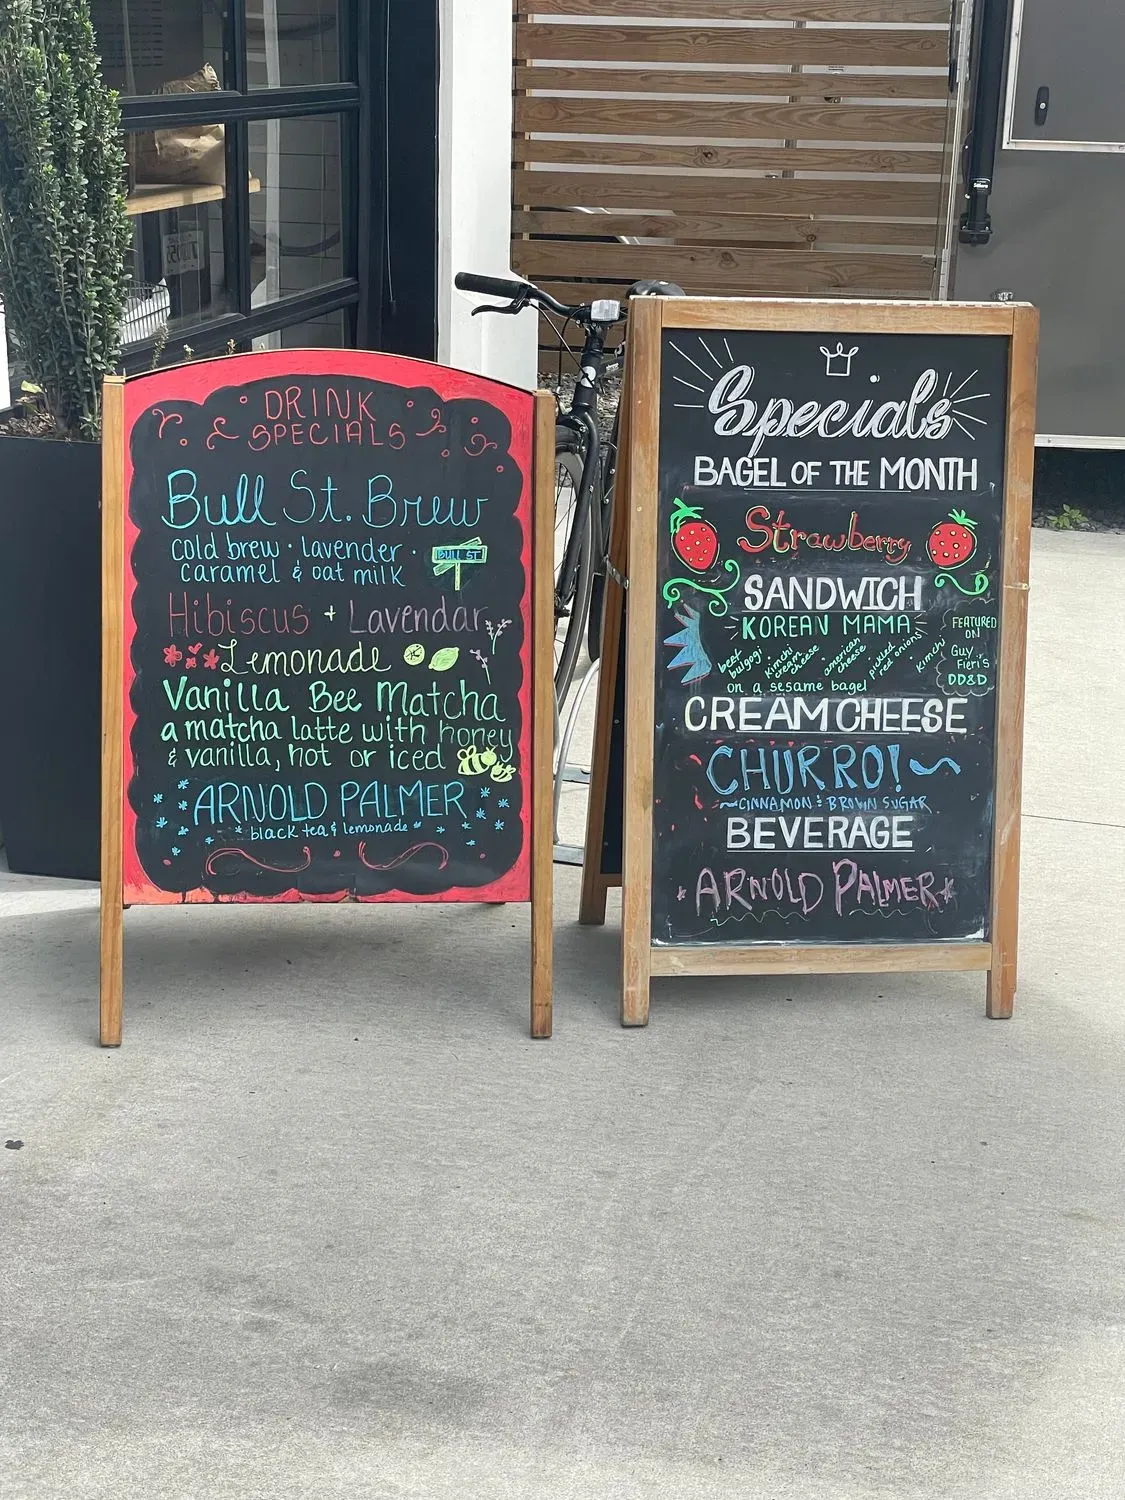 DRINK
SPECIALS
Bull St. Brew
cold brew · lavender ·
caramel & oat milk
BULL ST
Hibiscus + Lavendar
Lemonade
Vanilla Bee Matcha
a matcha latte with honey
& vanilla, hot or iced
ARNOLD PALMER
* black tea & lemonade *
Specials
BAGEL OF THE MONTH
Strawberry
SANDWICH
KOREAN MAMA
beef bulgogi
kimchi cream cheese
american cheese
pickled red onions
kimchi
on a sesame bagel
FEATURED
ON
Guy
Fieri's
DD&D
CREAM CHEESE
CHURRO!
~CINNAMON & BROWN SUGAR
BEVERAGE
ARNOLD PALMER